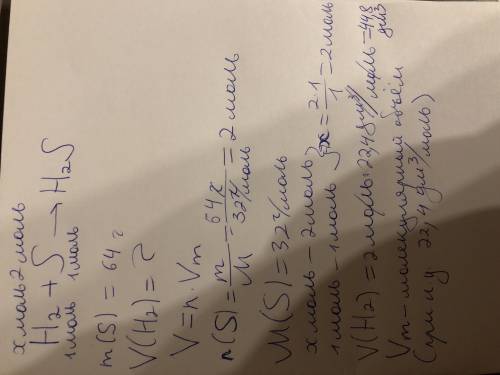 x моль 2 моль
H2 + S → H2S
1 моль 1 моль
m(S) = 64 г
V(H2) = ?
V = n · Vm
n(S) = m/M = 64г/32г/моль = 2 моль
M(S) = 32 г/моль
x моль – 2 моль } x = 2·1/1 = 2 моль
1 моль – 1 моль
V(H2) = 2 моль · 22,4 дм3/моль = 44,8 дм3
Vm – молекулярный объём
(при н у 22,4 дм3/моль)